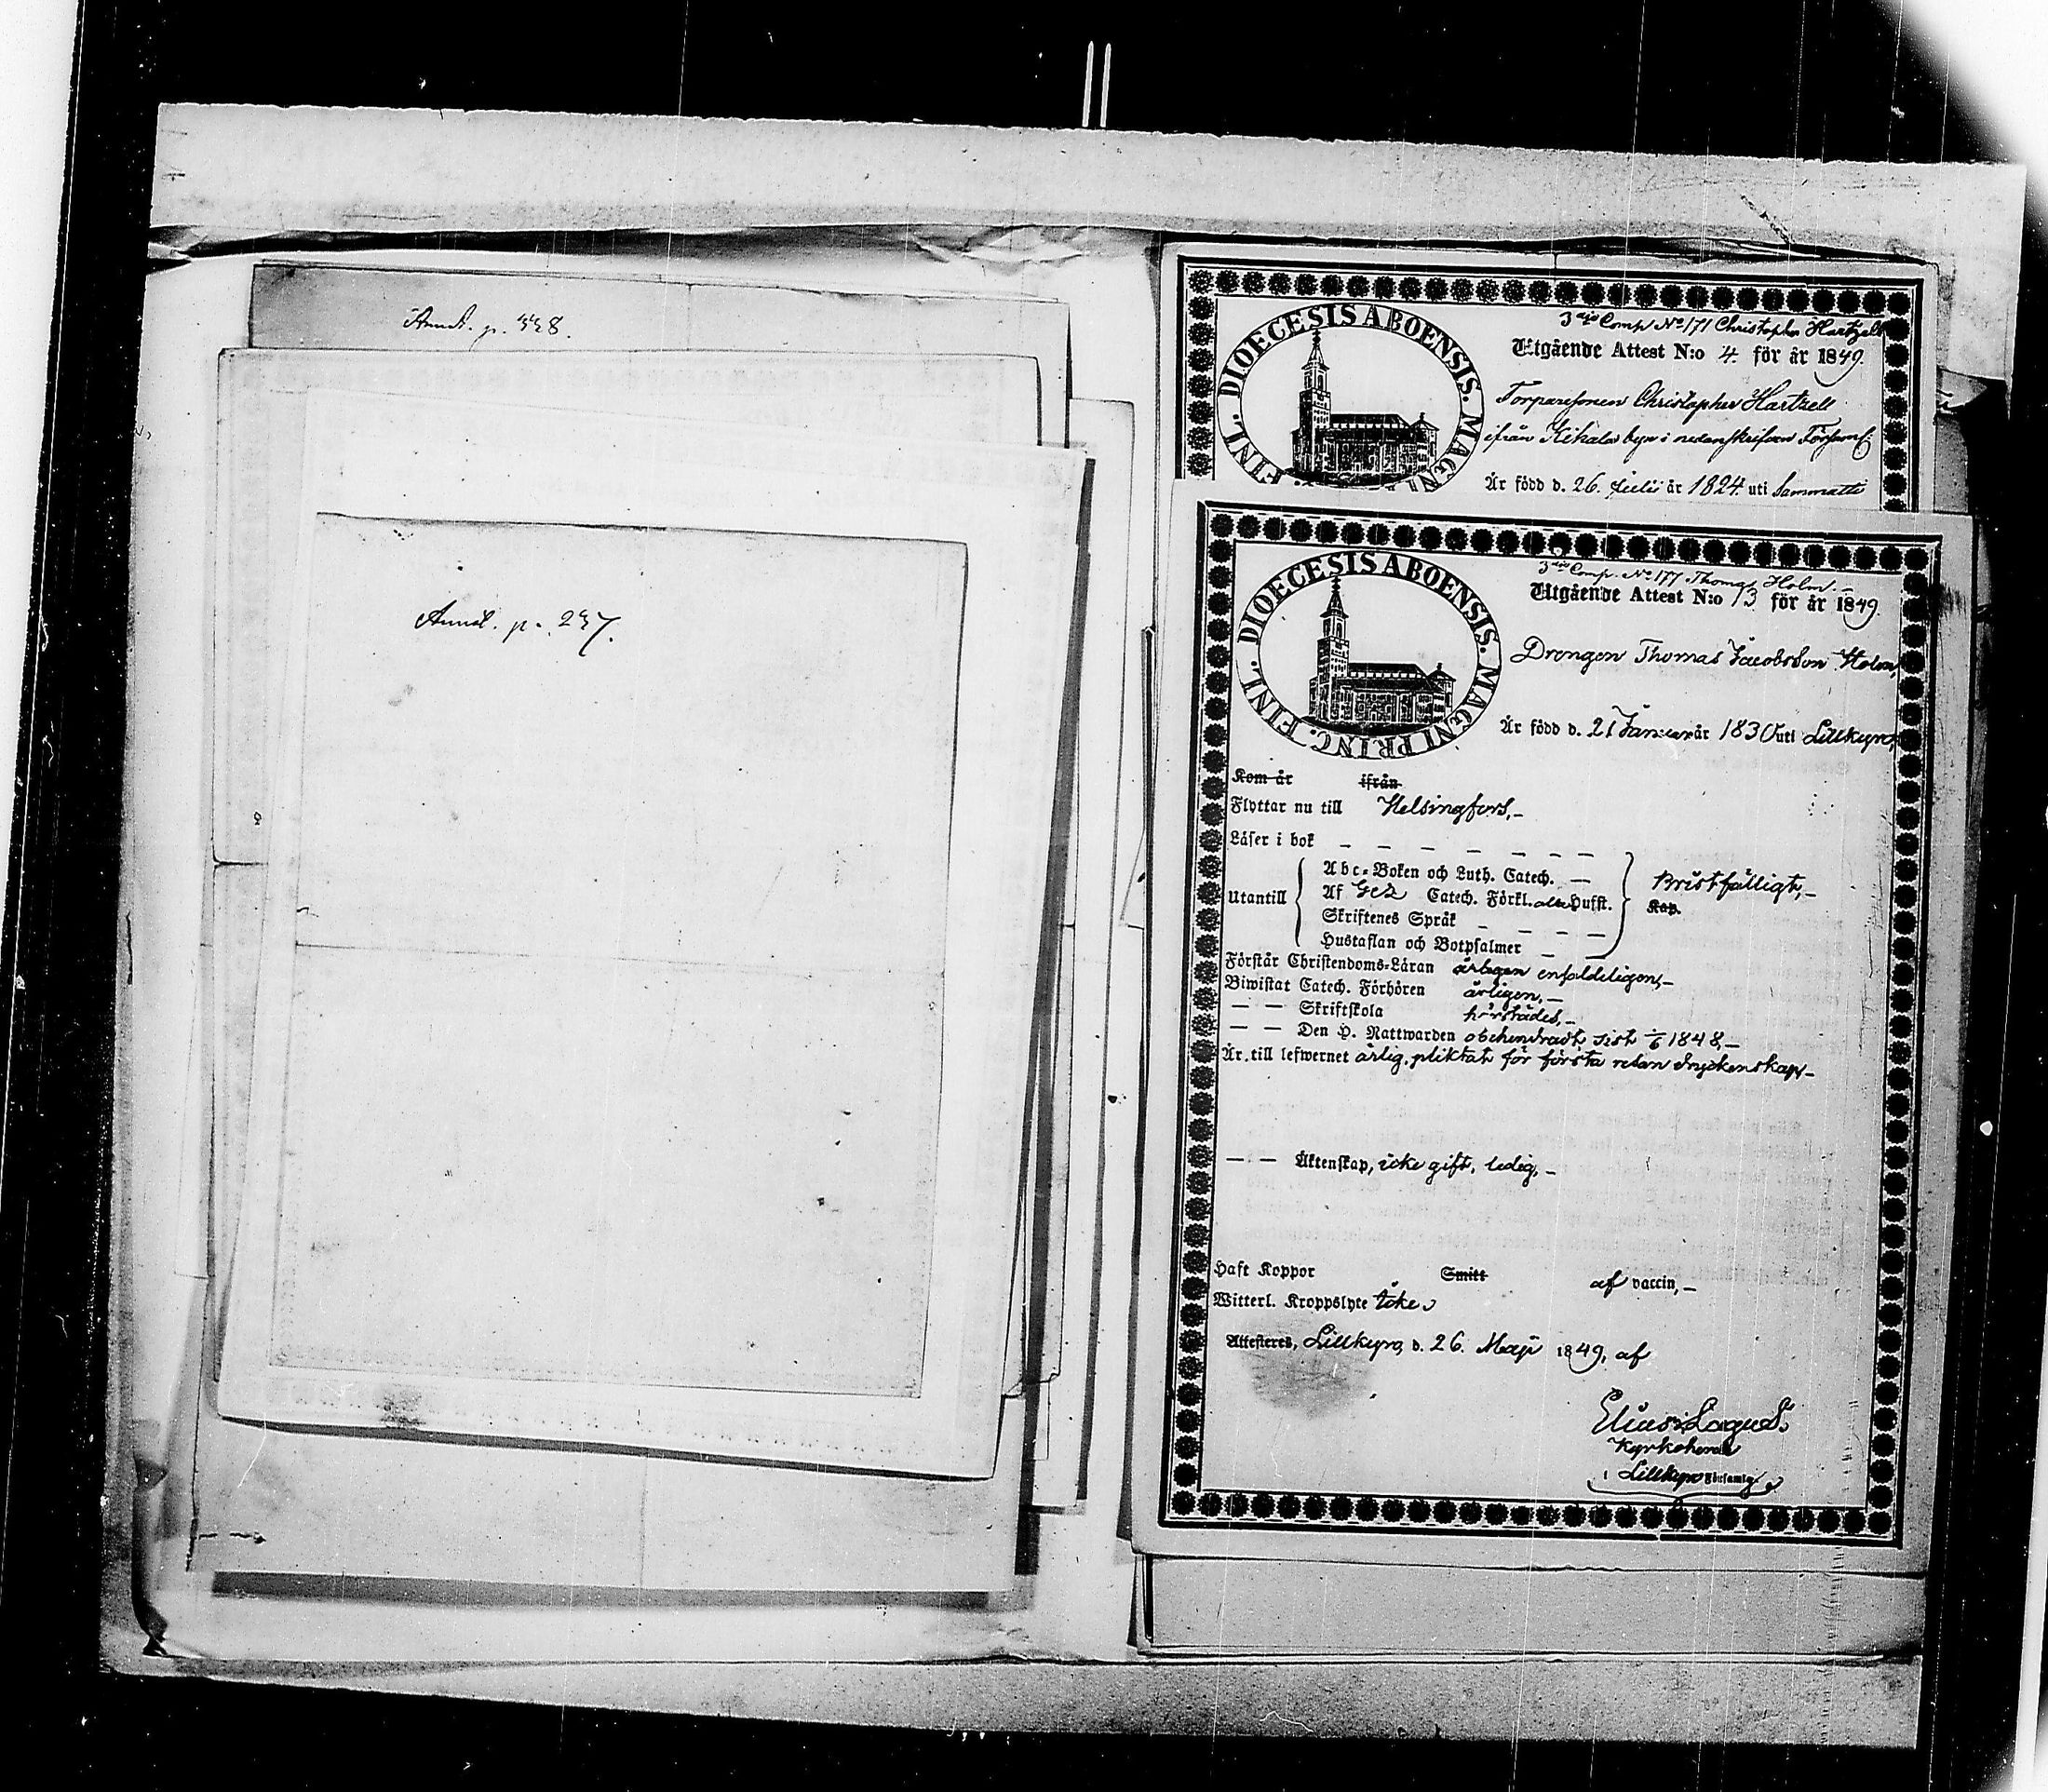 Annot. p. 338.
Annot. p. 237.
DIOECESIS ABOENSIS. MAGNI FINL.
3dje Comp No 171 Christopher Hartzell
Utgående Attest N:o 4. för år 1849.
Torparesonen Christopher Hartzell
ifrån Kihala by i nedanskrifven Församl:
Är född d. 26. Julii år 1824. uti Sammatti
DIOECESIS ABOENSIS. MAGNI PRINC. FINL.
3dje Comp. No 177 Thomas Holm.-
Utgående Attest N:o 13 för år 1849.
Drengen Thomas Jacobsson Holm,
Är född d. 21 Januar år 1830 uti Lillkyro,
Kom år ifrån
Flyttar nu till Helsingfors,-
Läser i bok — — — — — — —
Utantill
Abc-Boken och Luth. Catech. —
Af Gez Catech. Förkl. eller Hufst.
Skriftenes Språk - - - —
Hustaflan och Botpsalmer —
Bristfälligt,-
Kap.
Förstår Christendoms-Läran enfaldeligen,-
Biwistat Catech. Förhören årligen,—
— — Skriftskola härstädes,-
— — Den H. Nattwarden obehindradt sist 1848,—
Är till lefwernet ärlig, pliktat för första resan dryckenskap-
— — Äktenskap, icke gift, ledig,-
Haft Koppor Smitt af vaccin,—
Witterl. Kroppslyte Icke
Attesteres, Lillkyro, d. 26. Maji 1849, af
Elias Lagus.
Kyrkoherde
i Lillkyro Församlg.